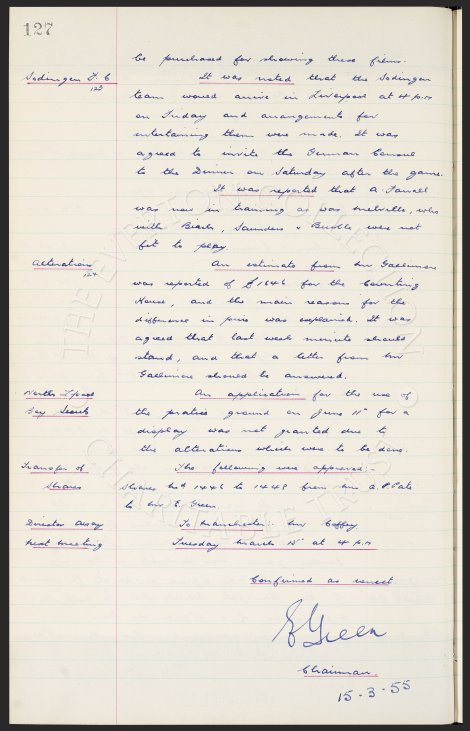 127
be purchased for showing these films.
Sodingen F. C It was noted that the Sodingen
123
team would arrive in Liverpool at 4 p.m
on Friday and arrangements for
entertaining them were made. It was
agreed to invite the German Consul
to the Dinner on Saturday after the game.
It was reported that A. Farrall
was now in training as was Melville, who
with Beach, Saunders & were not
fit to play.
Alterations An estimate from Mr Gallimore
124
was reported of £1646 for the Counting
House, and the main reasons for the
difference in price was explained. It was
agreed that last week minute should
stand, and that a letter from Mr
Gallimore should be answered.
North L'pool An application for the use of
Boy Scouts the practice ground on June 11th for a
display was not granted due to
the alterations which were to be done.
Transfer of The following were approved:-
Shares Shares Nos 1446 to 1448 from Mr A. P. Tate
to Mr E. Green.
Director away To Manchester: Mr Coffey
Next Meeting Tuesday March 15th at 4 p.m
Confirmed as correct
E Green
Chairman.
15-3-55
THE EVERTON COLLECTION
CHARITABLE TRUST